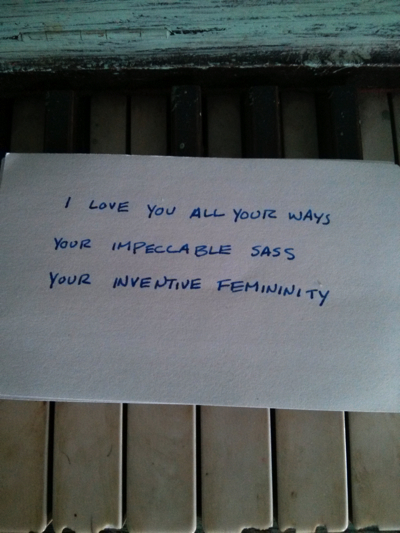 I LOVE YOU ALL YOUR WAYS
YOUR IMPECCABLE SASS
YOUR INVENTIVE FEMININITY